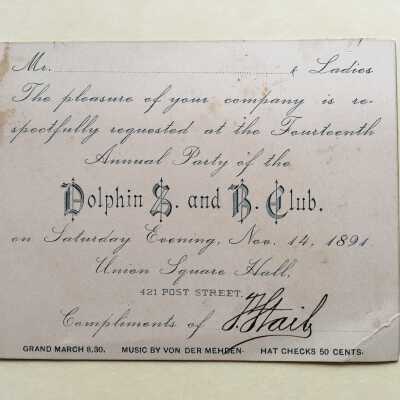 Mr. & Ladies
The pleasure of your company is re-
spectfully requested at the Fourteenth
Annual Party of the
Dolphin S. and B. Club.
on Saturday Evening, Nov. 14, 1891.
Union Square Hall,
421 POST STREET.
Compliments of
GRAND MARCH 8.30. MUSIC BY VON DER MEHDEN. HAT CHECKS 50 CENTS.